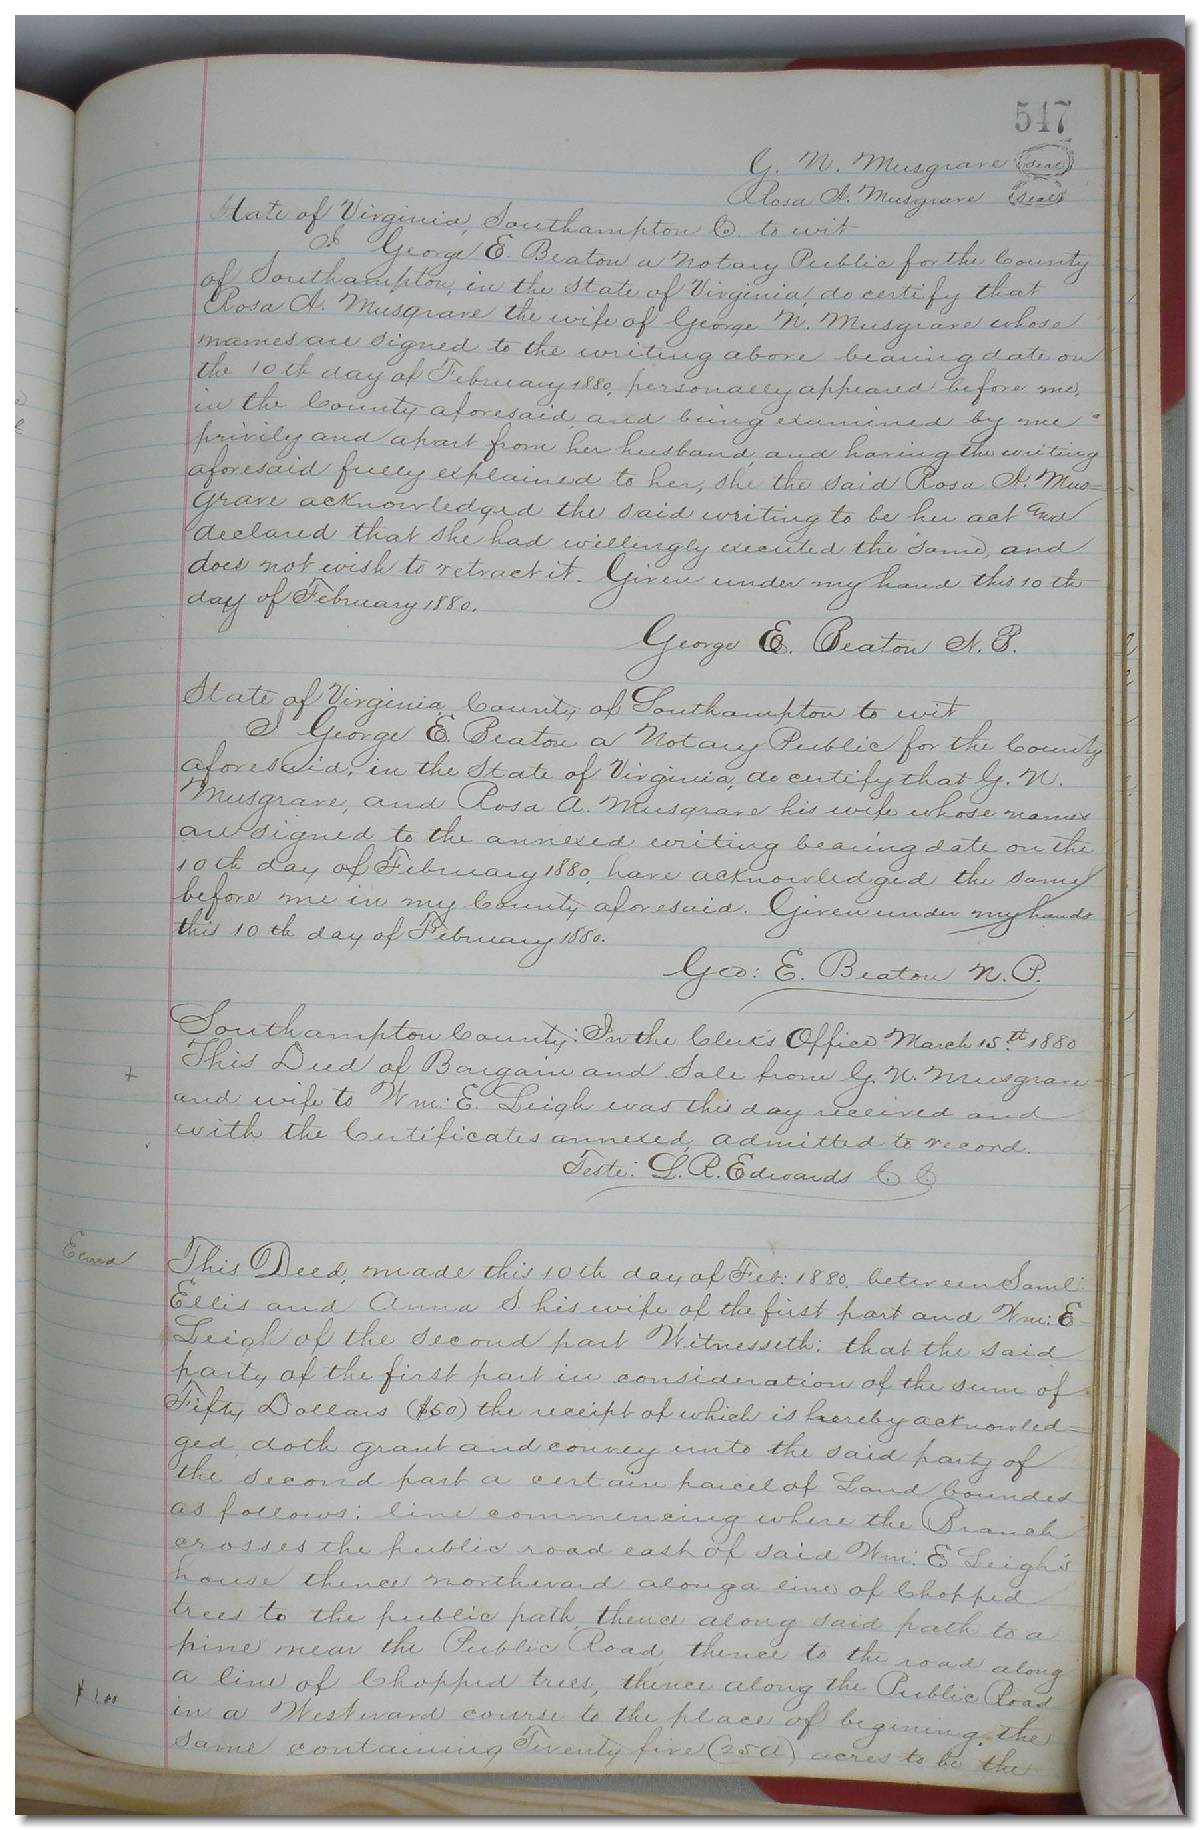 547
G. N. Musgrave (seal)
Rosa A. Musgrave (seal)
State of Virginia, Southampton C. to wit
I George E. Beaton a Notary Public for the County
of Southampton, in the State of Virginia, do certify that
Rosa A. Musgrave the wife of George N. Musgrave whose
names are signed to the writing above bearing date on
the 10th day of February 1880, personally appeared before me,
in the County aforesaid, and being examined by me
privily and apart from her husband, and having the writing
aforesaid fully explained to her, she the said Rosa A. Mus=
grave acknowledged the said writing to be her act and
declared that she had willingly executed the same, and
does not wish to retract it. Given under my hand this 10th
day of February 1880.
George E. Beaton N.P.
State of Virginia County of Southampton to wit
I George E. Beaton a Notary Public for the County
aforesaid, in the State of Virginia, do certify that G. N.
Musgrave, and Rosa A. Musgrave his wife whose names
are signed to the annexed writing bearing date on the
10th day of February 1880, have acknowledged the same
before me in my County aforesaid. Given under my hands
this 10th day of February 1880.
Geo: E. Beaton N.P.
Southampton County: In the Clerks Office March 15th 1880
This Deed of Bargain and Sale from G. N. Musgrave
+
and wife to Wm: E. Leigh was this day received and
with the Certificates annexed, admitted to record.
Teste: L. R. Edwards C C
This Deed, made this 10th day of Feb: 1880. between Saml:
Ellis and Anna S his wife of the first part and Wm: E
Leigh of the second part Witnesseth: that the said
party of the first part in consideration of the sum of
Fifty Dollars ($50) the receipt of which is hereby acknowled=
ged, doth grant and convey unto the said party of
the second part a certain parcel of Land bounded
as follows: line commencing where the Branch
crosses the public road east of said Wm: E Leigh's
house thence northward along a line of Chopped
trees to the public path, thence along said path to a
pine near the Public Road, thence to the road along
a line of Chopped trees, thence along the Public Road
$1.00
in a Westward course to the place of begining. the
same containing Twenty five (25a) acres to be the